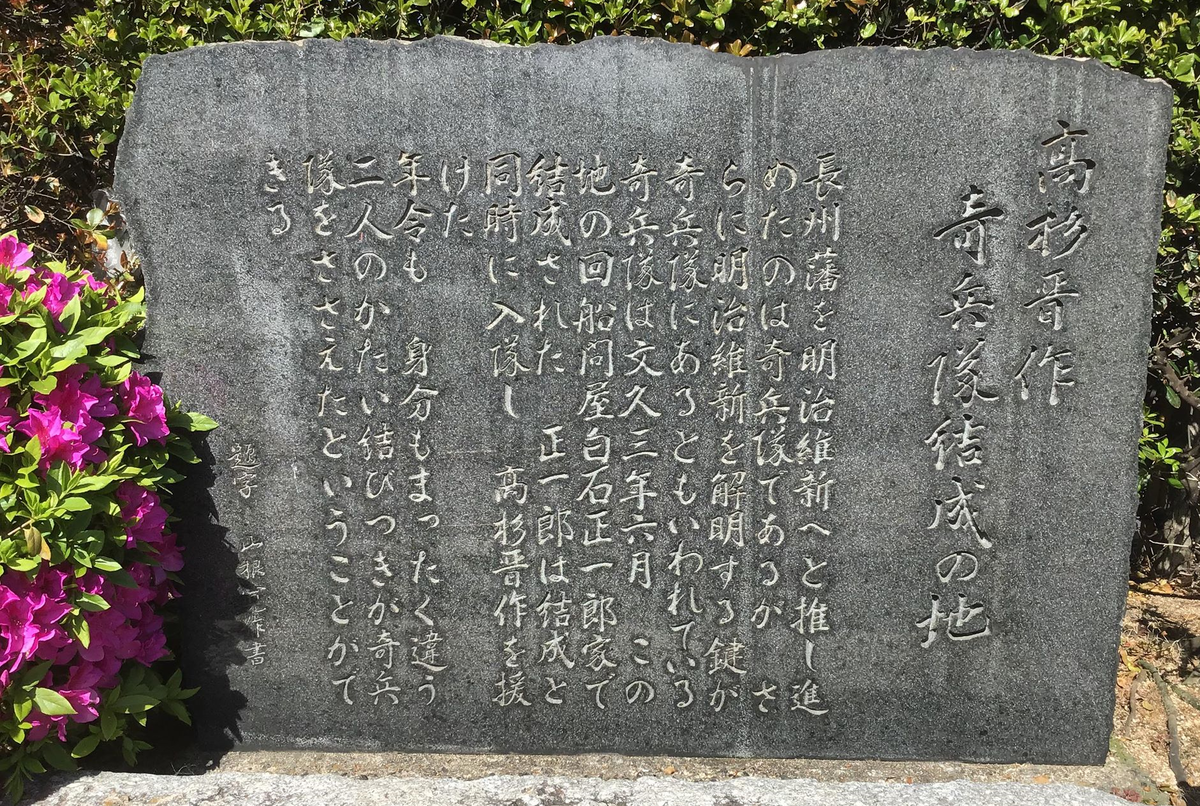 高杉晋作
奇兵隊結成の地
長州藩を明治維新へと推し進
めたのは奇兵隊てあるが さ
らに明治維新を解明する鍵が
奇兵隊にあるともいわれている
奇兵隊は文久三年六月 この
地の回船問屋白石正一郎家で
結成された 正一郎は結成と
同時に入隊し 高杉晋作を援
けた
年令も 身分もまったく違う
二人のかたい結びつきが奇兵
隊をささえたということがで
きる
題字 山根 作書